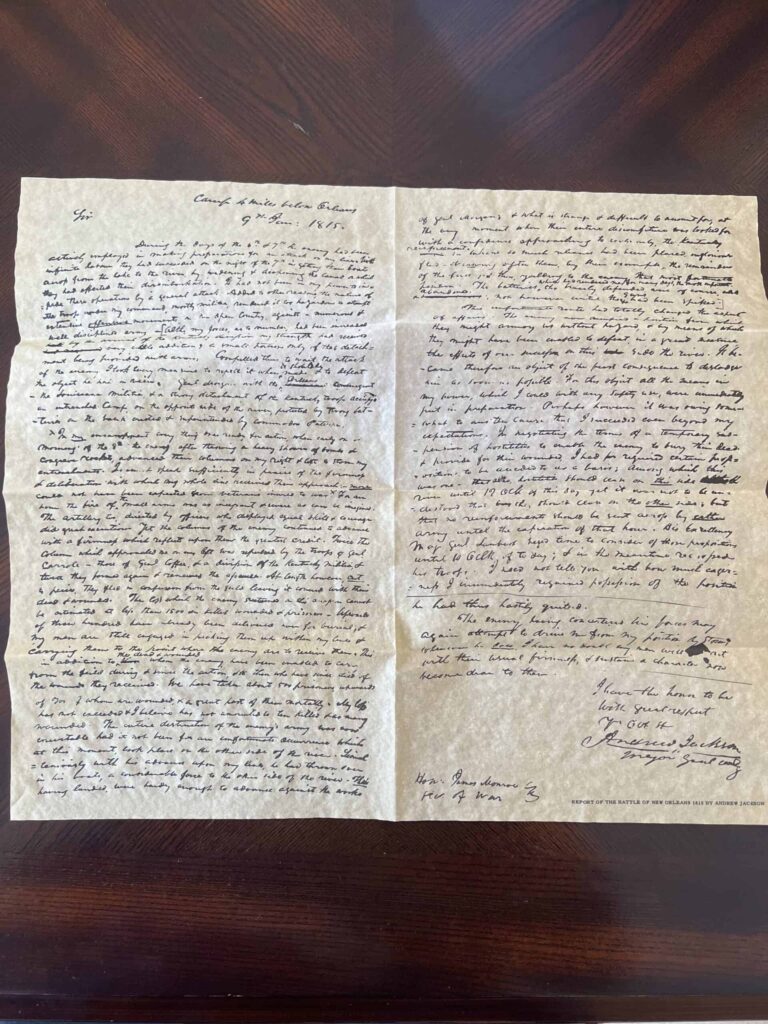 Camp 4 Miles below Orleans
9th Jan: 1815.
Sir
During the days of the 6th & 7th the enemy had been
actively employed in making preparations for an attack on my lines. With
infinite labour they had succeeded on the night of the 7th in getting their boats
across from the lake to the river by widening & deepening the canal on which
they had effected their disembarkation. It had not been in my power to im
pede these operations by a general attack. Added to other reasons the nature of
the troops under my command, mostly militia, rendered it too hazardous to attempt
extensive offensive movements in an open country, against a numerous &
well disciplined army. Altho my forces, as to number, had been increased
my strength had received
very little addition; a small portion only of that detach-
ment being provided with arms. Compelled thus to wait the attack
of the enemy I took every measure to repel it when made & to defeat
the object he had in view. Genl Morgan with the Orleans contingent
the Louisiana Militia & a strong detachment of the Kentucky troops occupied
an intended Camp on the opposite side of the river, protected by strong bat-
teries on the bank erected & superintended by commodore Patterson.
In my encampment every thing was ready for action, when early on
morning of the 8th the enemy after throwing a heavy shower of bombs &
Congreve rockets, advanced their columns on my right & left to storm my
entrenchments. I cannot speak sufficiently in praise of the firmness
& deliberation with which my whole line received their approach - more
could not have been expected from veterans inured to war. For an
hour the fire of the small arms was as incessant & severe as can be imagined.
The artillery too, directed by officers who displayed equal skill & courage
did great execution. Yet the columns of the enemy continued to advance
with a firmness which reflects upon them the greatest credit. Twice the
column which approached me on my left was repulsed by the troops of Genl
Carroll - those of Genl Coffee, & a division of the Kentucky militia, &
twice they formed again & renewed the assault. At length however, cut
to pieces, they fled in confusion from the field leaving it covered with their
dead & wounded. The loss which the enemy sustained on this occasion cannot
be estimated at less than 1500 in killed wounded & prisoners - Upwards
of three hundred have already been delivered over for burial; &
my men are still engaged in picking them up within my lines &
carrying them to the point where the enemy are to receive them. This is
in addition to the dead & wounded whom the enemy have been enabled to carry
from the field during & since the action, & to those who have since died of
the wounds they received. We have taken about 500 prisoners, upwards
of 300 of whom are wounded & a great part of them mortally. My loss
has not exceeded & I believe has not amounted to ten killed & as many
wounded. The entire destruction of the enemy's army was now
inevitable had it not been for an unfortunate occurrence which
at this moment took place on the other side of the river. Simul
taneously with his advance upon my lines, he had thrown over
in his boats, a considerable force to the other side of the river. These
having landed, were hardy enough to advance against the works
of Genl Morgan; & what is strange & difficult to account for, at
the very moment when their entire discomfiture was looked for
with a confidence approaching to certainty, the Kentucky
reinforcements in whom so much reliance had been placed ingloriously
fled - drawing after them, by their example, the remainder
of the forces; & thus yielding to the enemy that most fortunate
position. The batteries which had rendered me, for many days, the most important
service, tho bravely defended were of course now
abandoned; not however until the guns had been spiked.
This unfortunate route had totally changed the aspect
of affairs. The enemy now occupied a position from which
they might annoy us without hazard, & by means of which
they might have been enabled to defeat, in a great measure
the effects of our success on this side the river. It be-
came therefore an object of the first consequence to dislodge
him as soon as possible. For this object, all the means in
my power, which I could with any safety use, were immediately
put in preparation. Perhaps however it was owing some-
what to another cause that I succeeded even beyond my
expectations. In negotiating the terms of a temporary sus-
pension of hostilities to enable the enemy to bury their dead
& provide for their wounded, I had required certain prop-
ositions to be acceded to as a basis; among which this
was one - that altho hostilities should cease on this side the
river until 12 OClk of this day, yet it was not to be un-
derstood that they should cease on the other side; but
that no reinforcements should be sent across by either
army until the expiration of that hour. His Excellency
Maj Genl Lambert begged time to consider of those propositions
until 10 OClk of to day; & in the meantime recrossed
his troops. I need not tell you with how much eager-
ness I immediately regained possession of the position
he had thus hastily quited.
The enemy having concentered his forces may
again attempt to drive me from my position by storm
whenever he does I have no doubt my men will act
with their usual firmness, & sustain a character now
become dear to them.
I have the honor to be
with great respect
Yr. Obt St
Andrew Jackson
Major Genl comdg
Hon: James Monroe
Sec. of War
REPORT OF THE BATTLE OF NEW ORLEANS 1815 BY ANDREW JACKSON